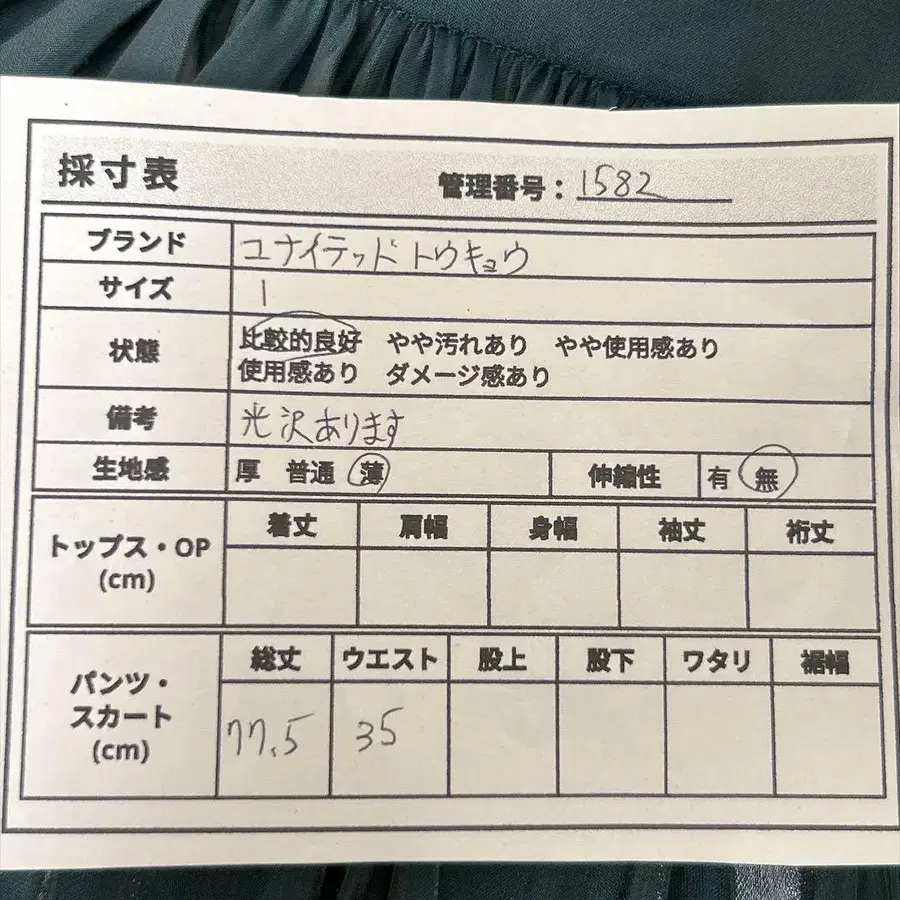 採寸表
管理番号：1582
ブランド ユナイテッド トウキョウ
サイズ 1
状態 比較的良好 やや汚れあり やや使用感あり
使用感あり ダメージ感あり
備考 光沢あります
生地感 厚 普通 薄 伸縮性 有 無
トップス・OP (cm) 着丈 肩幅 身幅 袖丈 裄丈
パンツ・スカート (cm) 総丈 ウエスト 股上 股下 ワタリ 裾幅
77.5 35